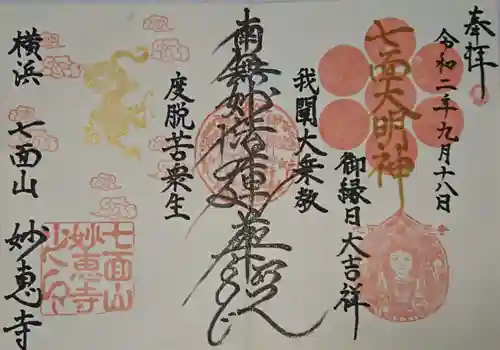 奉拝
令和二年九月十八日
七面大明神
御縁日大吉祥
我闡大乗教
南無妙法蓮華経
度脱苦衆生
横浜 七面山 妙恵寺
七面山
妙恵寺